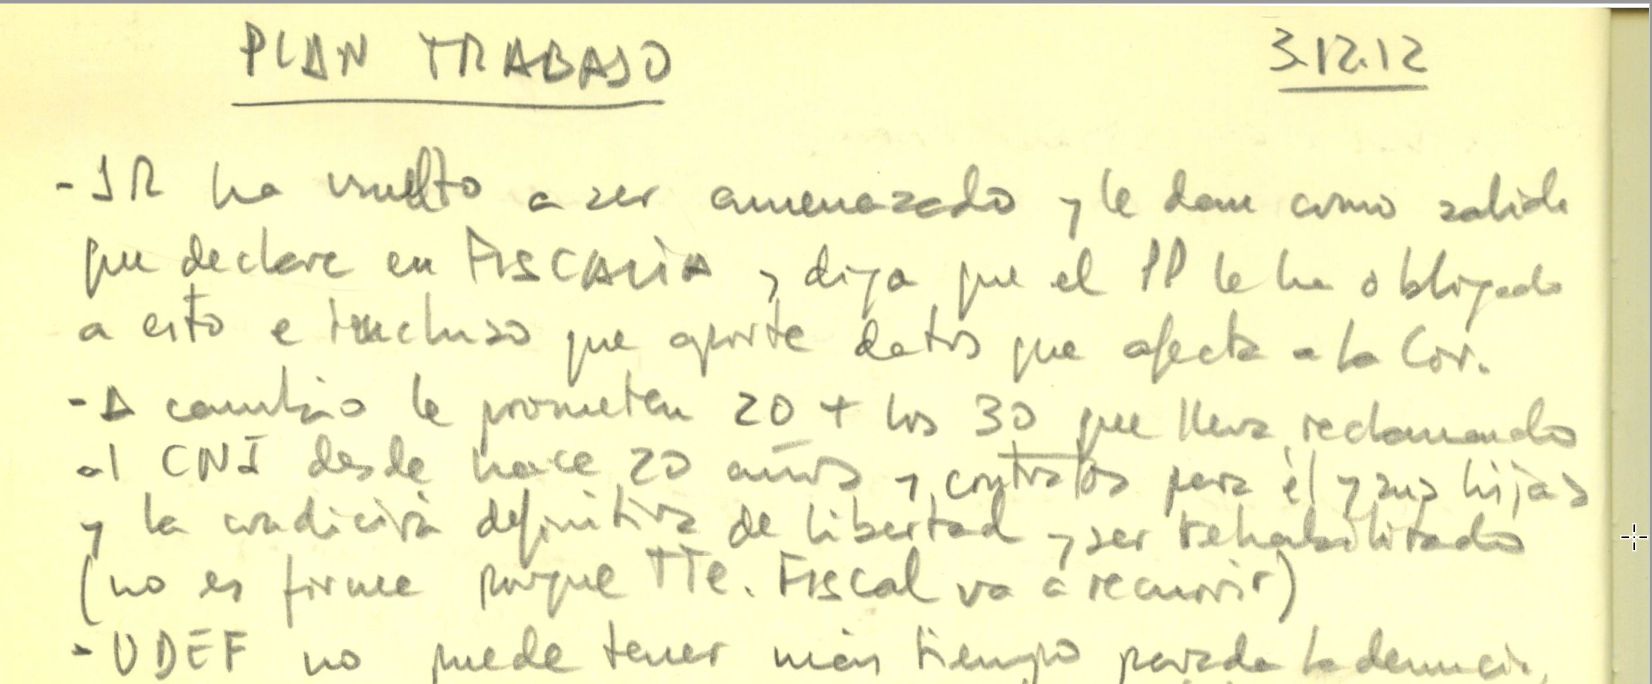 PLAN TRABAJO 3.12.12
- JR ha vuelto a ser amenazado y le dan como salida
que declare en FISCALIA y diga que el PP le ha obligado
a esto e incluso que aporte datos que afecta a la Cor.
- A cambio le prometen 20 + los 30 que lleva reclamando
al CNI desde hace 20 años y contratos para él y sus hijas
y la condición definitiva de libertad y ser rehabilitado
(no es firme porque TTe. Fiscal va a recurrir)
- UDEF no puede tener más tiempo parada la denuncia,